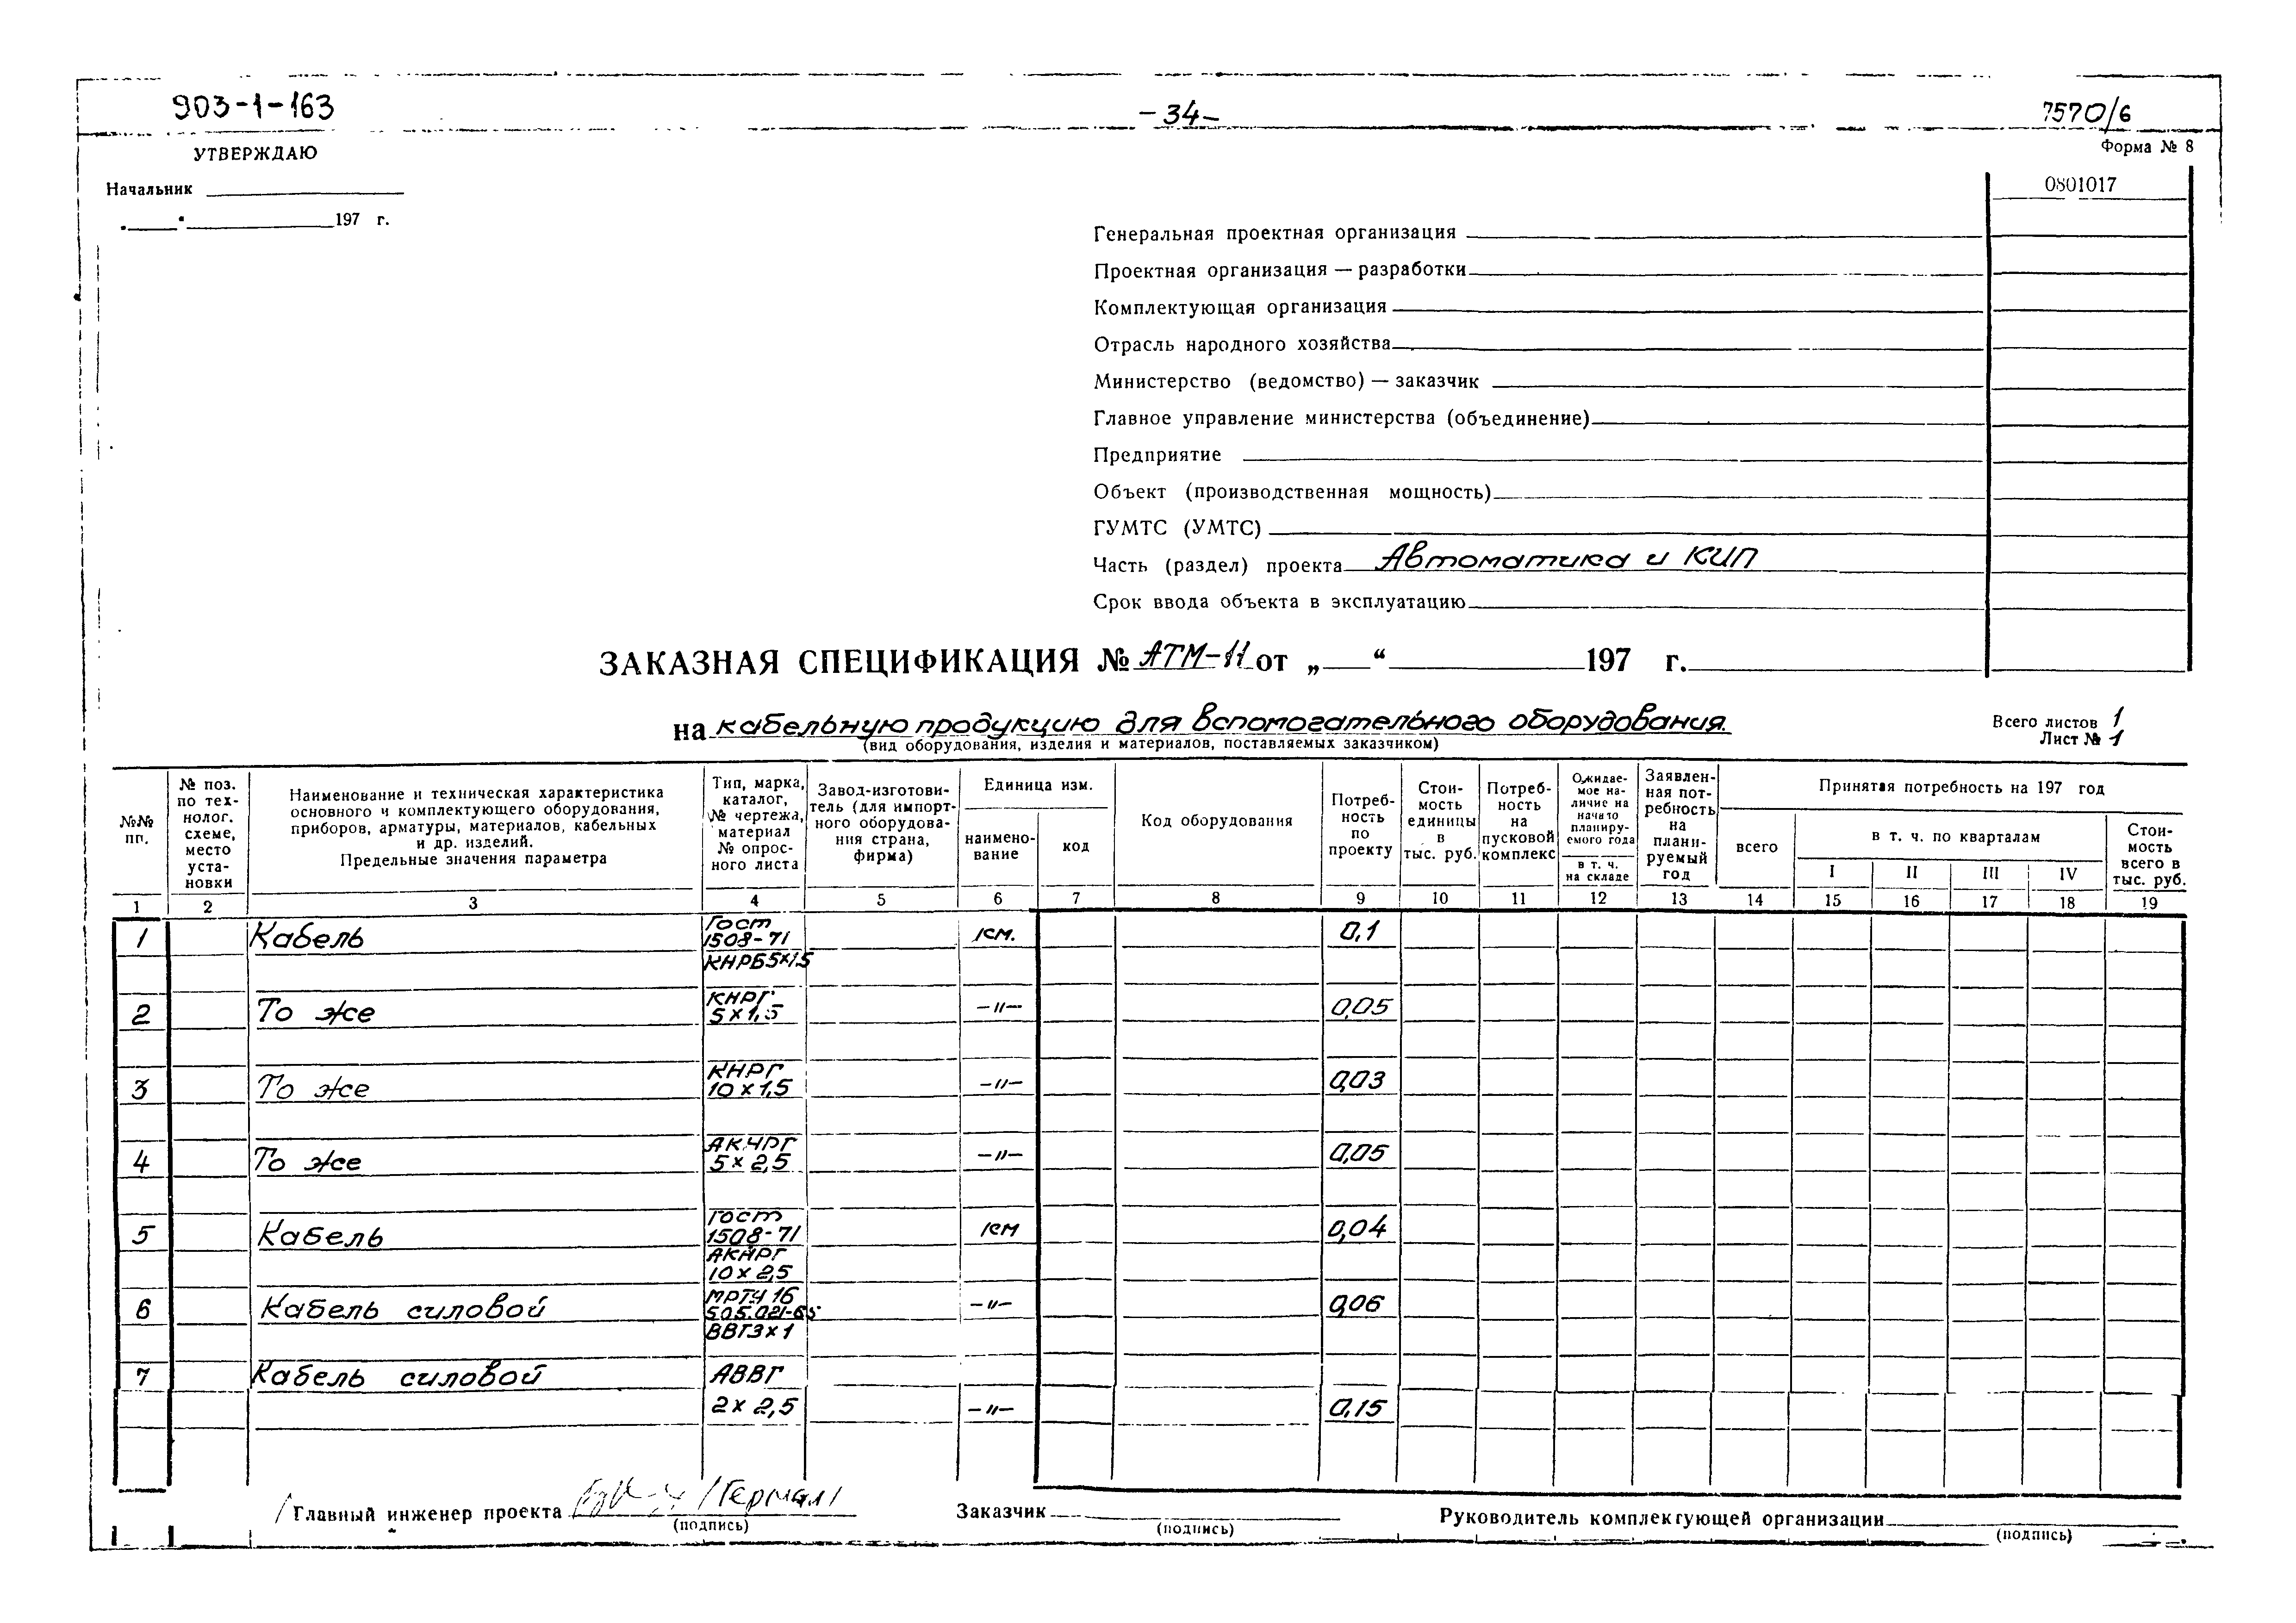 903-1-163
-34-
7570/6
УТВЕРЖДАЮ
Форма № 8
Начальник
0801017
197 г.
Генеральная проектная организация
Проектная организация — разработки
Комплектующая организация
Отрасль народного хозяйства
Министерство (ведомство) — заказчик
Главное управление министерства (объединение)
Предприятие
Объект (производственная мощность)
ГУМТС (УМТС)
Часть (раздел) проекта Автоматика и КИП
Срок ввода объекта в эксплуатацию
ЗАКАЗНАЯ СПЕЦИФИКАЦИЯ № АТМ-11 от „ “ 197 г.
на кабельную продукцию для вспомогательного оборудования.
(вид оборудования, изделия и материалов, поставляемых заказчиком)
Всего листов 1
Лист № 1
№№
пп.
№ поз.
по тех-
нолог.
схеме,
место
уста-
новки
Наименование и техническая характеристика
основного и комплектующего оборудования,
приборов, арматуры, материалов, кабельных
и др. изделий.
Предельные значения параметра
Тип, марка,
каталог,
№ чертежа,
материал
№ опрос-
ного листа
Завод-изготови-
тель (для импорт-
ного оборудова-
ния страна,
фирма)
Единица изм.
наимено-
вание
код
Код оборудования
Потреб-
ность
по
проекту
Стои-
мость
единицы
в
тыс. руб.
Потреб-
ность
на
пусковой
комплекс
Ожидае-
мое на-
личие на
начало
планиру-
емого года
в т. ч.
на складе
Заявлен-
ная пот-
ребность
на
плани-
руемый
год
Принятая потребность на 197 год
всего
в т. ч. по кварталам
I II III IV
Стои-
мость
всего в
тыс. руб.
1 2 3 4 5 6 7 8 9 10 11 12 13 14 15 16 17 18 19
1 Кабель Гост
1508-71
КНРБ5×1.5 км. 0,1
2 То же КНРГ
5×1,5 -"- 0,05
3 То же КНРГ
10×1,5 -"- 0,03
4 То же АКНРГ
5×2,5 -"- 0,05
5 Кабель Гост
1508-71
АКНРГ
10×2,5 км 0,04
6 Кабель силовой МРТУ 16
505.021-65
ВВГ3×1 -"- 0,06
7 Кабель силовой АВВГ
2×2,5 -"- 0,15
Главный инженер проекта
(подпись)
Заказчик
(подпись)
Руководитель комплектующей организации
(подпись)